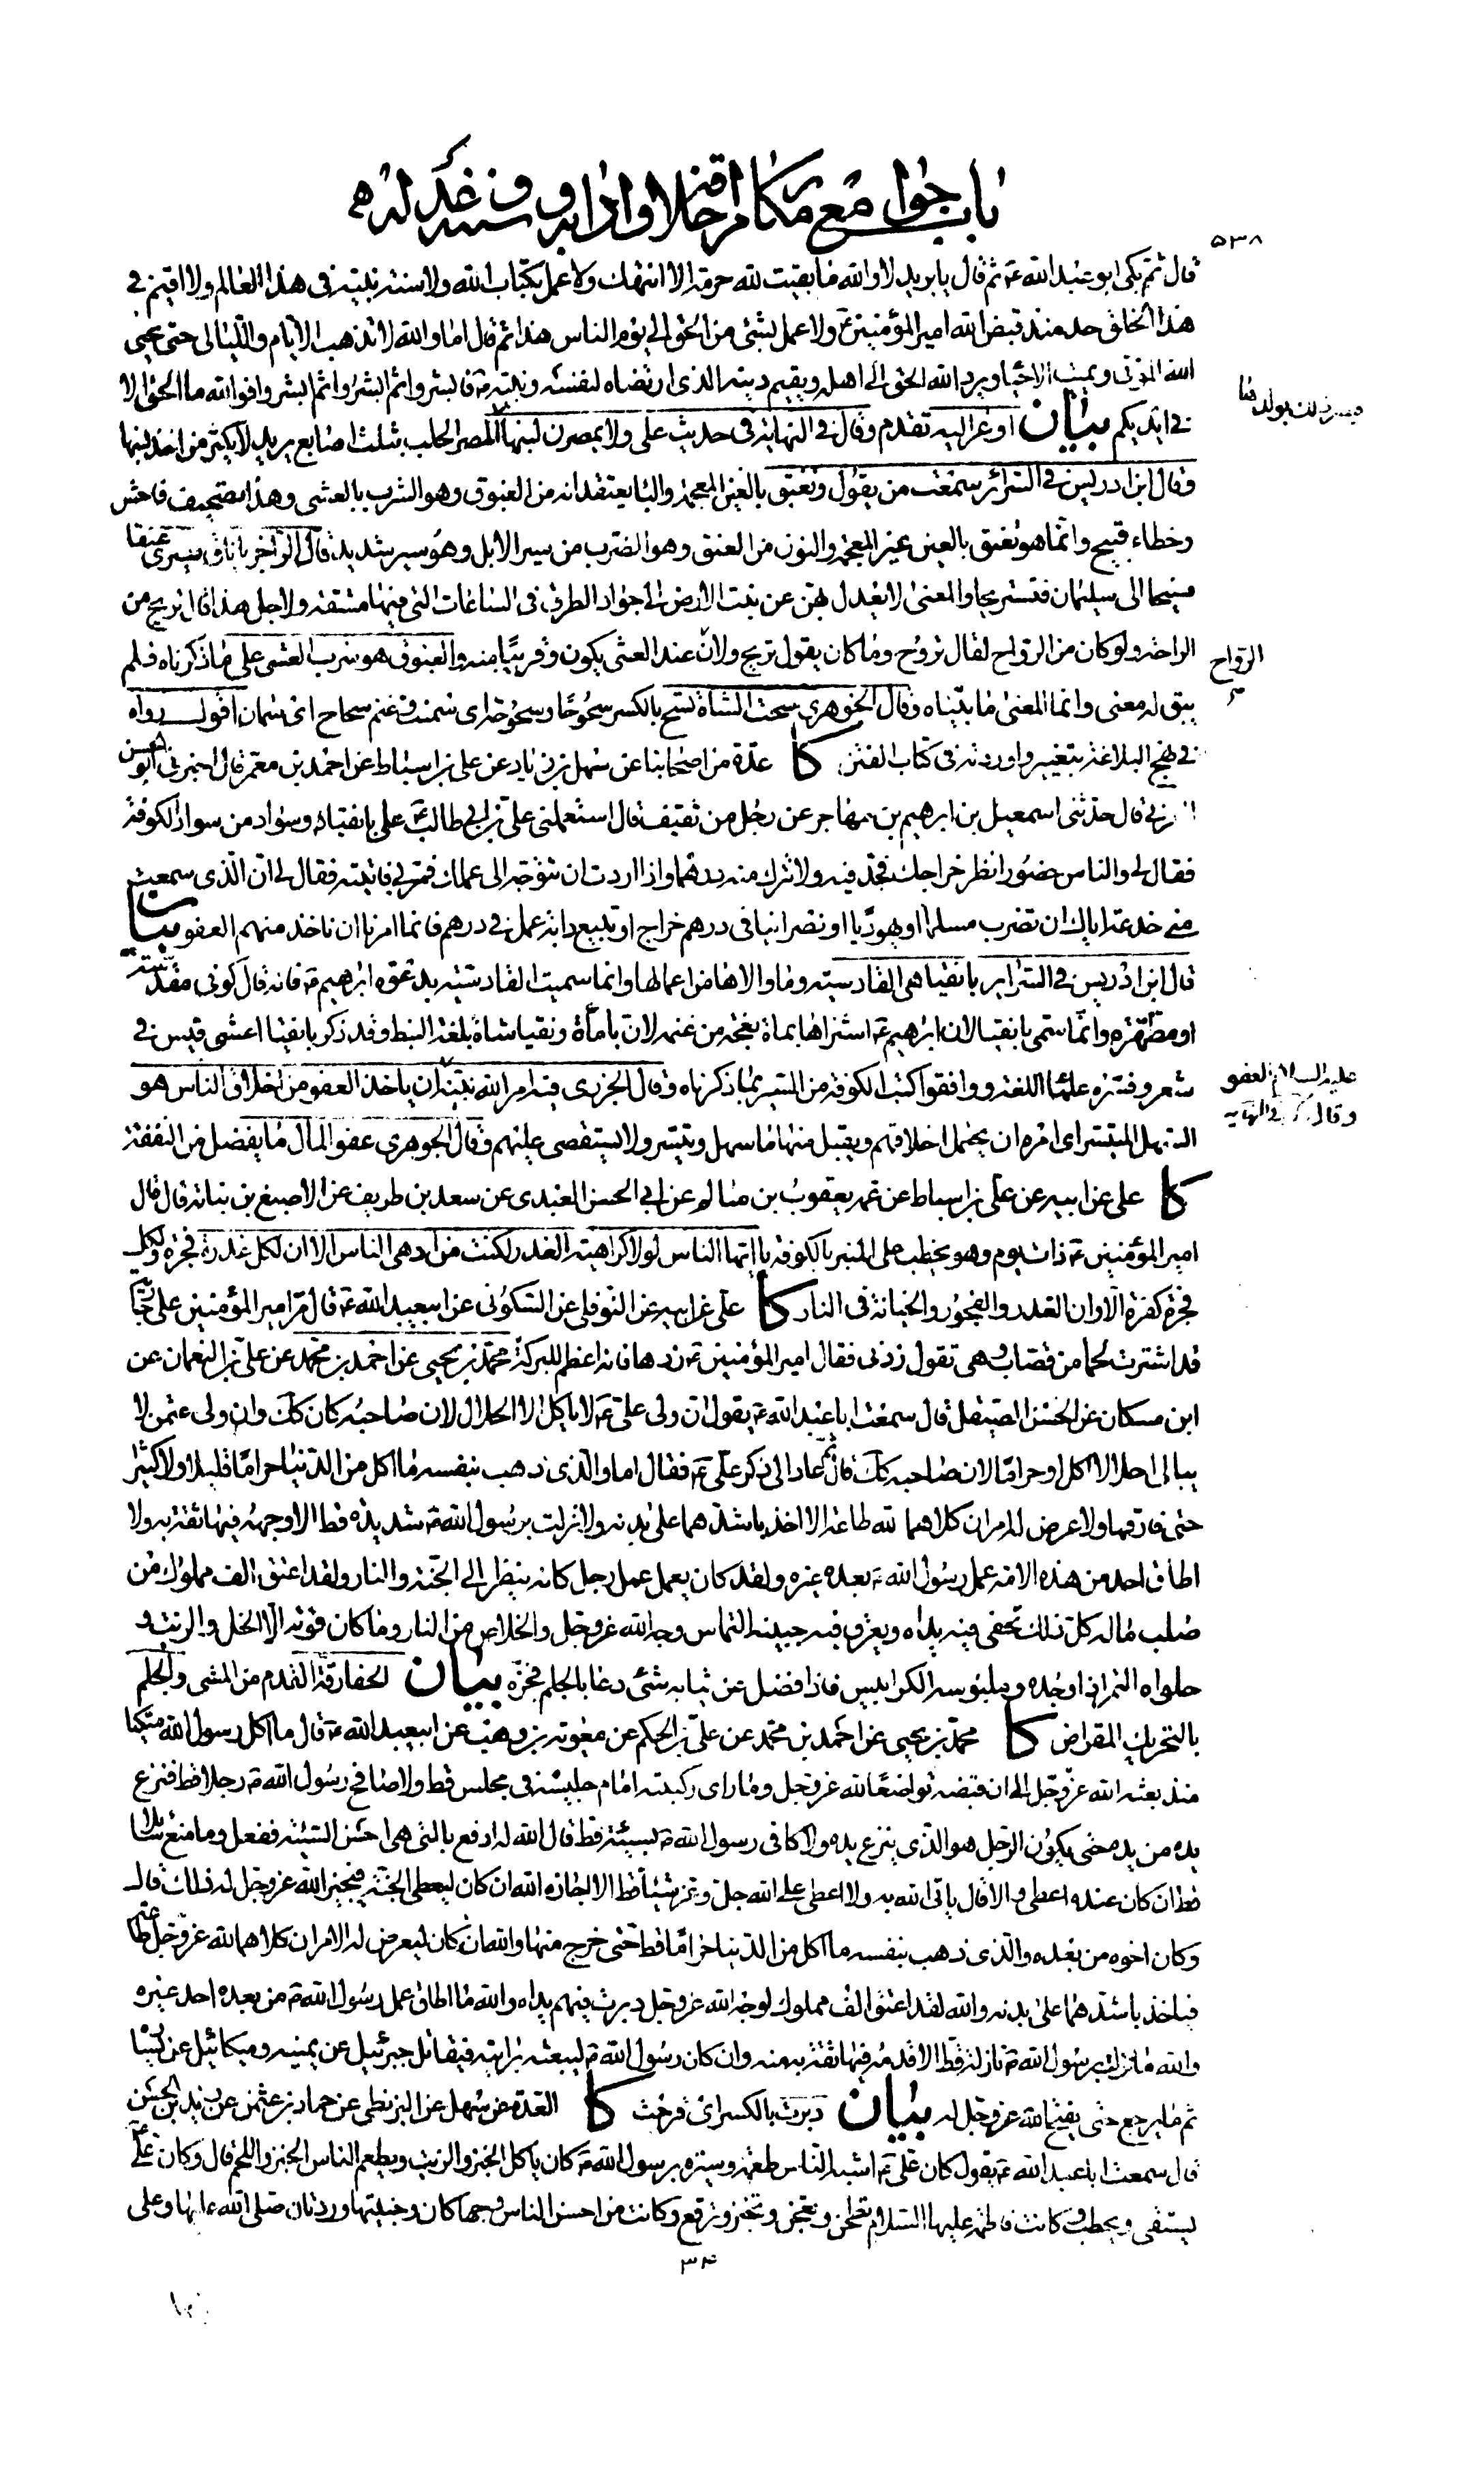 باب جوامع مكارم اخلاقه وادابه وسننه وعدله
٥٣٨
قال ثم بكى ابو عبد الله ع ثم قال يا بريد لا والله ما بقيت لله حرمة الا انتهكت ولا عمل بكتاب الله ولا سنة نبيه فى هذا العالم ولا اقيم فى
هذا الخلق حد منذ قبض الله امير المؤمنين ع ولا عمل بشئ من الحق الى يوم الناس هذا ثم قال اما والله لا تذهب الايام والليالى حتى يحيى
الله الموتى ويميت الاحياء ويرد الله الحق الى اهله ويقيم دينه الذى ارتضاه لنفسه ونبيه ص فابشروا ثم ابشروا ثم ابشروا فوالله ما الحق الا
فى ايديكم بيان اوعز اليه تقدم وقال فى النهاية فى حديث على ولا يمصرن لبنها المصر الحلب بثلث اصابع يريد لا يكثر من اخذ لبنها
وقال ابن ادريس فى السرائر سمعت من يقول وتغبق بالغين المعجمة والباء يعتقد انه من الغبوق وهو الشرب بالعشى وهذا تصحيف فاحش
وخطاء قبيح وانما هو تعنق بالعين غير المعجمة والنون من العنق وهو الضرب من سير الابل وهو سير شديد قال الراجز يا ناق سيرى عنقا
فسيحا الى سليمان فتستريحا والمعنى لا يعدل بهن عن نبت الارض الى جواد الطرق فى الساعات التى فيها مشقة ولاجل هذا قال تريح من
الراحة ولو كان من الرواح لقال تروح وما كان يقول تريح ولان عند العشى يكون وقريبا منه والغبوق هو شرب العشى على ما ذكرناه فلم
الرواح
يبق له معنى وانما المعنى ما بيناه وقال الجوهرى سحت الشاة تسح بالكسر سحوحا وسحوحة اى سمنت وغنم سحاح اى سمان اقول رواه
فى نهج البلاغة بتغيير واوردته فى كتاب الفتن كا عدة من اصحابنا عن سهل بن زياد عن على بن اسباط عن احمد بن معمر قال اخبرنى ابو الحسن
قال حدثنى اسمعيل بن ابرهيم بن مهاجر عن رجل من ثقيف قال استعملنى على بن ابى طالب ع على بانقياء وسواد من سواد الكوفة
فقال لى والناس حضور انظر خراجك فجد فيه ولا تترك منه درهما واذا اردت ان تتوجه الى عملك فمر بى فاتيته فقال لى ان الذى سمعت
منى خدعة اياك ان تضرب مسلما او يهوديا او نصرانيا فى درهم خراج او تبيع دابة عمل فى درهم فانما امرنا ان ناخذ منهم العفو بيان
قال ابن ادريس فى السرائر بانقيا هى القادسية وما والاها من اعمالها وانما سميت القادسية بدعوة ابرهيم ع فانه قال كونى مقدسة
او مطهرة وانما سمى بانقيا لان ابرهيم ع اشتراها بماة نعجة من غنمه لان با مأة ونقيا شاة بلغة النبط وقد ذكر بانقيا اعشى قيس فى
شعر وفسره علماء اللغة ووافقوا كتب الكوفة من السير بما ذكرناه وقال الجزرى فيه امر الله نبيه ان ياخذ العفو من اخلاق الناس هو
عليه السلام العفو
السهل المتيسر اى امره ان يحتمل اخلاقهم ويقبل منها ما سهل وتيسر ولا يستقصى عليهم وقال الجوهرى عفو المال ما يفضل من النفقة
كا على عن ابيه عن على بن اسباط عن عمه يعقوب بن سالم عن ابى الحسن العبدى عن سعد بن طريف عن الاصبغ بن نباتة قال قال
امير المؤمنين ع ذات يوم وهو يخطب على المنبر بالكوفة يا ايها الناس لولا كراهية الغدر لكنت من ادهى الناس الا ان لكل غدرة فجرة ولكل
فجرة كفرة الا وان الغدر والفجور والخيانة فى النار كا على عن ابيه عن النوفلى عن السكونى عن ابيعبد الله ع قال مر امير المؤمنين على جارية
قد اشترت لحما من قصاب وهى تقول زدنى فقال امير المؤمنين ع زدها فانه اعظم للبركة محمد بن يحيى عن احمد بن محمد عن على بن النعمان عن
ابن مسكان عن الحسن الصيقل قال سمعت ابا عبد الله ع يقول ان ولى على ع لا ياكل الا الحلال لان صاحبه كان كك وان ولى عثمن لا
يبالى احلالا اكل او حراما لان صاحبه كك قال ثم عاد الى ذكر على ع فقال اما والذى ذهب بنفسه ما اكل من الدنيا حراما قليلا ولا كثيرا
حتى فارقها ولا عرض له امران كلاهما لله طاعة الا اخذ باشدهما على بدنه ولا نزلت برسول الله ص شديدة قط الا وجهه فيها ثقة به ولا
اطاق احد من هذه الامة عمل رسول الله ص بعده غيره ولقد كان يعمل عمل رجل كانه ينظر الى الجنة والنار ولقد اعتق الف مملوك من
صلب ماله كل ذلك تحفى فيه يداه ويعرق فيه جبينه التماس وجه الله عز وجل والخلاص من النار وما كان قوته الا الخل والزيت و
حلواه التمر اذا وجده وملبوسه الكرابيس فاذا فضل عن ثيابه شئ دعا بالجلم فجزه بيان الحفا رقة القدم من المشى والجلم
بالتحريك المقراض كا محمد بن يحيى عن احمد بن محمد عن على بن الحكم عن معوية بن وهب عن ابيعبد الله ع قال ما اكل رسول الله متكيا
منذ بعثه الله عز وجل الى ان قبضه تواضعا لله عز وجل وما راى ركبتيه امام جليسه فى مجلس قط ولا صافح رسول الله ص رجلا قط فنزع
يده من يده حتى يكون الرجل هو الذى ينزع يده ولا كافى رسول الله ص بسيئة قط قال الله له ادفع بالتى هى احسن السيئة ففعل وما منع سائلا
قط ان كان عنده اعطى والا قال ياتى الله به ولا اعطى على الله جل وعز شيئا قط الا اجازه الله ان كان ليعطى الجنة فيجيز الله عز وجل له ذلك قال
وكان اخوه من بعده والذى ذهب بنفسه ما اكل من الدنيا حراما قط حتى خرج منها والله ان كان ليعرض له الامران كلاهما لله عز وجل طاعة
فياخذ باشدهما على بدنه والله لقد اعتق الف مملوك لوجه الله عز وجل دبرت فيهم يداه والله ما اطاق عمل رسول الله ص من بعده احد غيره
والله ما نزلت برسول الله ص نازلة قط الا قدمه فيها ثقة به منه وان كان رسول الله ص ليبعثه برايته فيقاتل جبرئيل عن يمينه وميكائيل عن يساره
ثم ما يرجع حتى يفتح الله عز وجل له بيان دبرت بالكسر اى قرحت كا العدة عن سهل عن البزنطى عن حماد بن عثمن عن زيد بن الحسن
قال سمعت ابا عبد الله ع يقول كان على ع اشبه الناس طعمة وسيرة برسول الله ص كان ياكل الخبز والزيت ويطعم الناس الخبز واللحم قال وكان على ع
يستقى ويحطب وكانت فاطمة عليها السلام تطحن وتعجن وتخبز وترقع وكانت من احسن الناس وجها كان وجنتيها وردتان صلى الله عليها وعلى